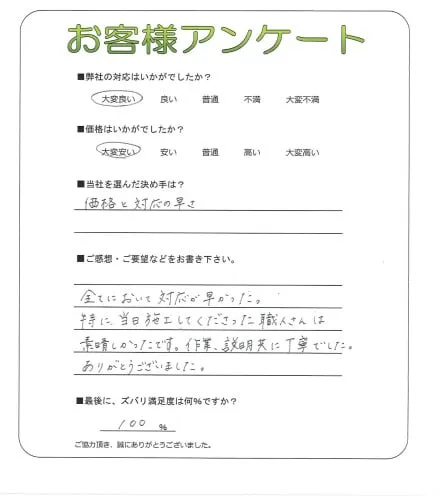 お客様アンケート
■弊社の対応はいかがでしたか？
大変良い 良い 普通 不満 大変不満
■価格はいかがでしたか？
大変安い 安い 普通 高い 大変高い
■当社を選んだ決め手は？
価格と対応の早さ
■ご感想・ご要望などをお書き下さい。
全てにおいて対応が早かった。
特に、当日施工してくださった職人さんは
素晴しかったです。作業、説明共に丁寧でした。
ありがとうございました。
■最後に、ズバリ満足度は何％ですか？
100 ％
ご協力頂き、誠にありがとうございました。